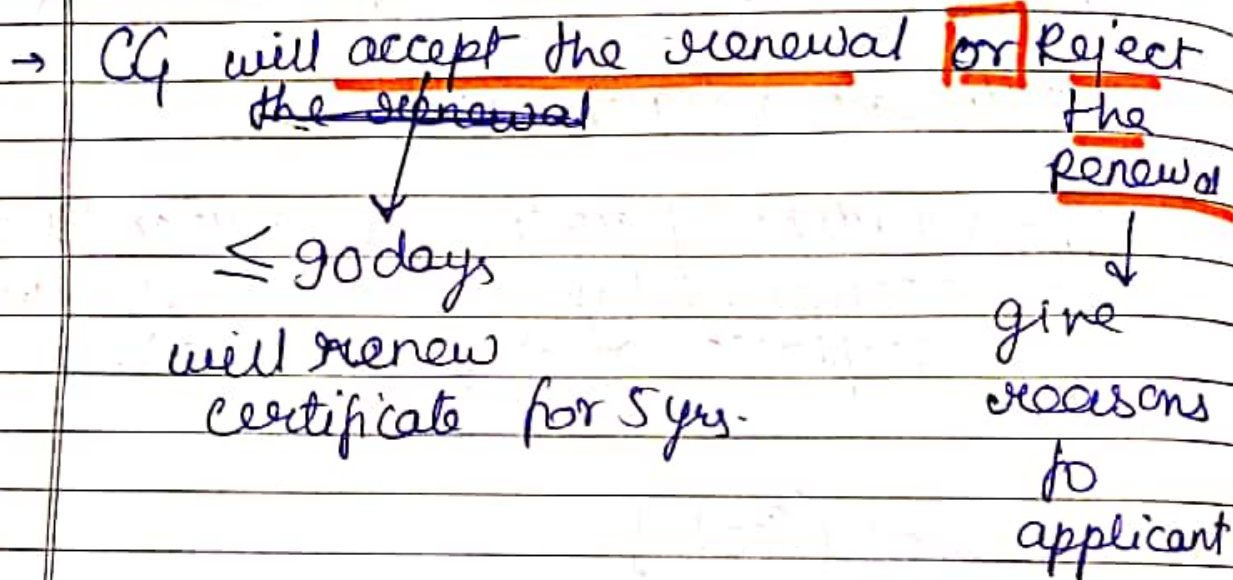 → CG will accept the renewal or Reject
the renewal
the
Renewal
≤ 90 days
will renew
certificate for 5 yrs.
give
reasons
to
applicant